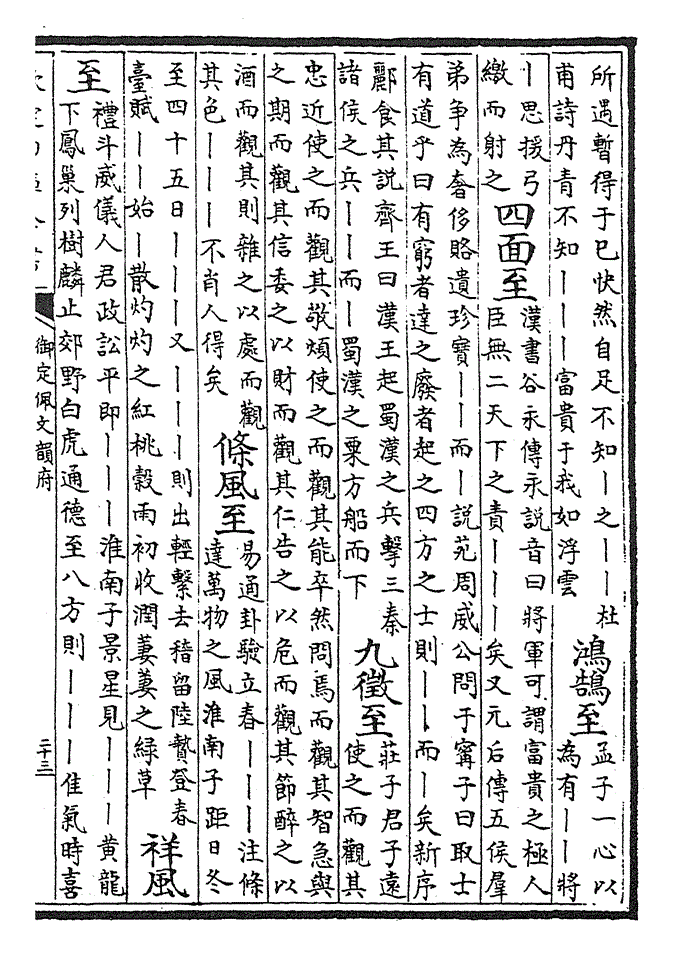 所遇暫得于已快然自足不知丨之丨丨杜
甫詩丹青不知丨丨丨富貴于我如浮雲
鴻鵠至
孟子一心以
為有丨丨將
丨思援弓
繳而射之
四面至
漢書谷永傳永說音曰將軍可謂富貴之極人
臣無二天下之責丨丨丨矣又元后傳五侯羣
弟争為奢侈賂遺珍寶丨丨而丨說苑周威公問于甯子曰取士
有道乎曰有窮者達之廢者起之四方之士則丨丨而丨矣新序
酈食其說齊王曰漢王起蜀漢之兵擊三秦
諸侯之兵丨丨而丨蜀漢之粟方船而下
九徵至
莊子君子遠
使之而觀其
忠近使之而觀其敬煩使之而觀其能卒然問焉而觀其智急與
之期而觀其信委之以財而觀其仁告之以危而觀其節醉之以
酒而觀其則雜之以處而觀
其色丨丨丨不肖人得矣
條風至
易通卦驗立春丨丨丨注條
達萬物之風淮南子距日冬
至四十五日丨丨丨又丨丨丨則出輕繫去稽留陸贄登春
臺賦丨丨始丨散灼灼之紅桃榖雨初收潤萋萋之緑草
祥風
至
禮斗威儀人君政訟平即丨丨丨淮南子景星見丨丨丨黄龍
下鳳巢列樹麟止郊野白虎通德至八方則丨丨丨佳氣時喜
御定佩文韻府
二十三